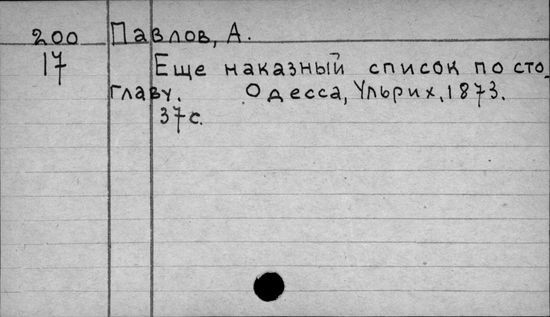 200 Павлов, А.
17 Еще наказный список по сто-
главу. Одесса, Ульрих, 1873.
37 с.